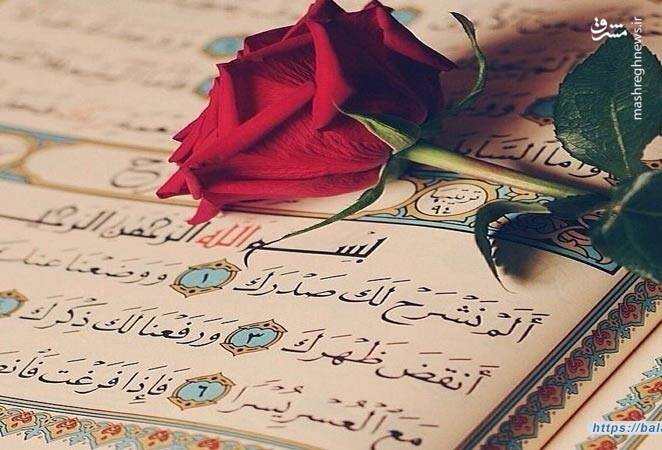 مشرق
mashreghnews.ir
وأما السايل
ترتيبها
٩٤
بِسْمِ اللَّهِ الرَّحْمَٰنِ الرَّحِي
أَلَمْ نَشْرَحْ لَكَ صَدْرَكَ ١ وَوَضَعْنَا عَنكَ
أَنقَضَ ظَهْرَكَ ٣ وَرَفَعْنَا لَكَ ذِكْرَكَ
مَعَ الْعُسْرِ يُسْرًا ٦ فَإِذَا فَرَغْتَ فَانصَ
https://bala